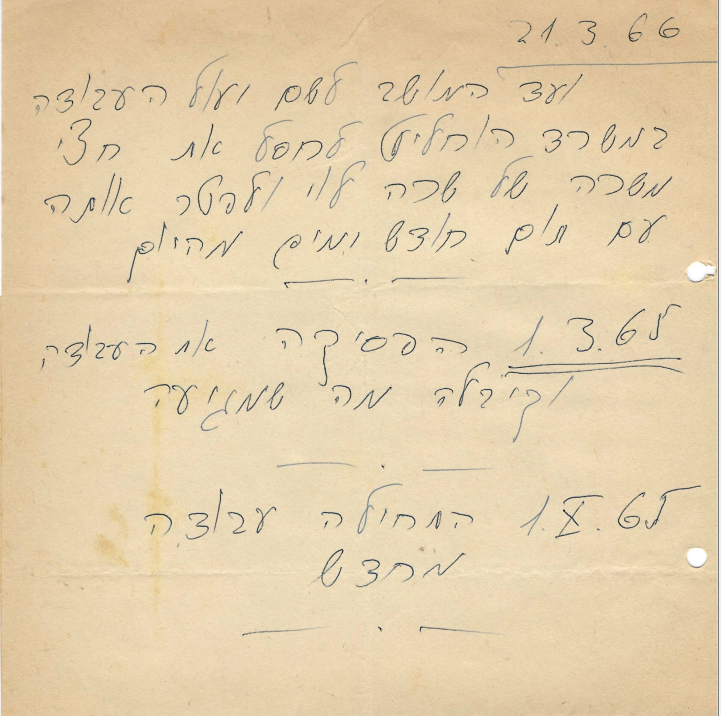 21.3.66
ועד המושב לשם ועול העבודה
במשרד החליט לחסל את חצי
משרה של שרה לוי ולפטר אותה
עם תום חודש ימים מהיום
1.3.67 הפסיקה את העבודה
וקיבלה מה שמגיע
1.X.67 התחילה עבודה
מחדש